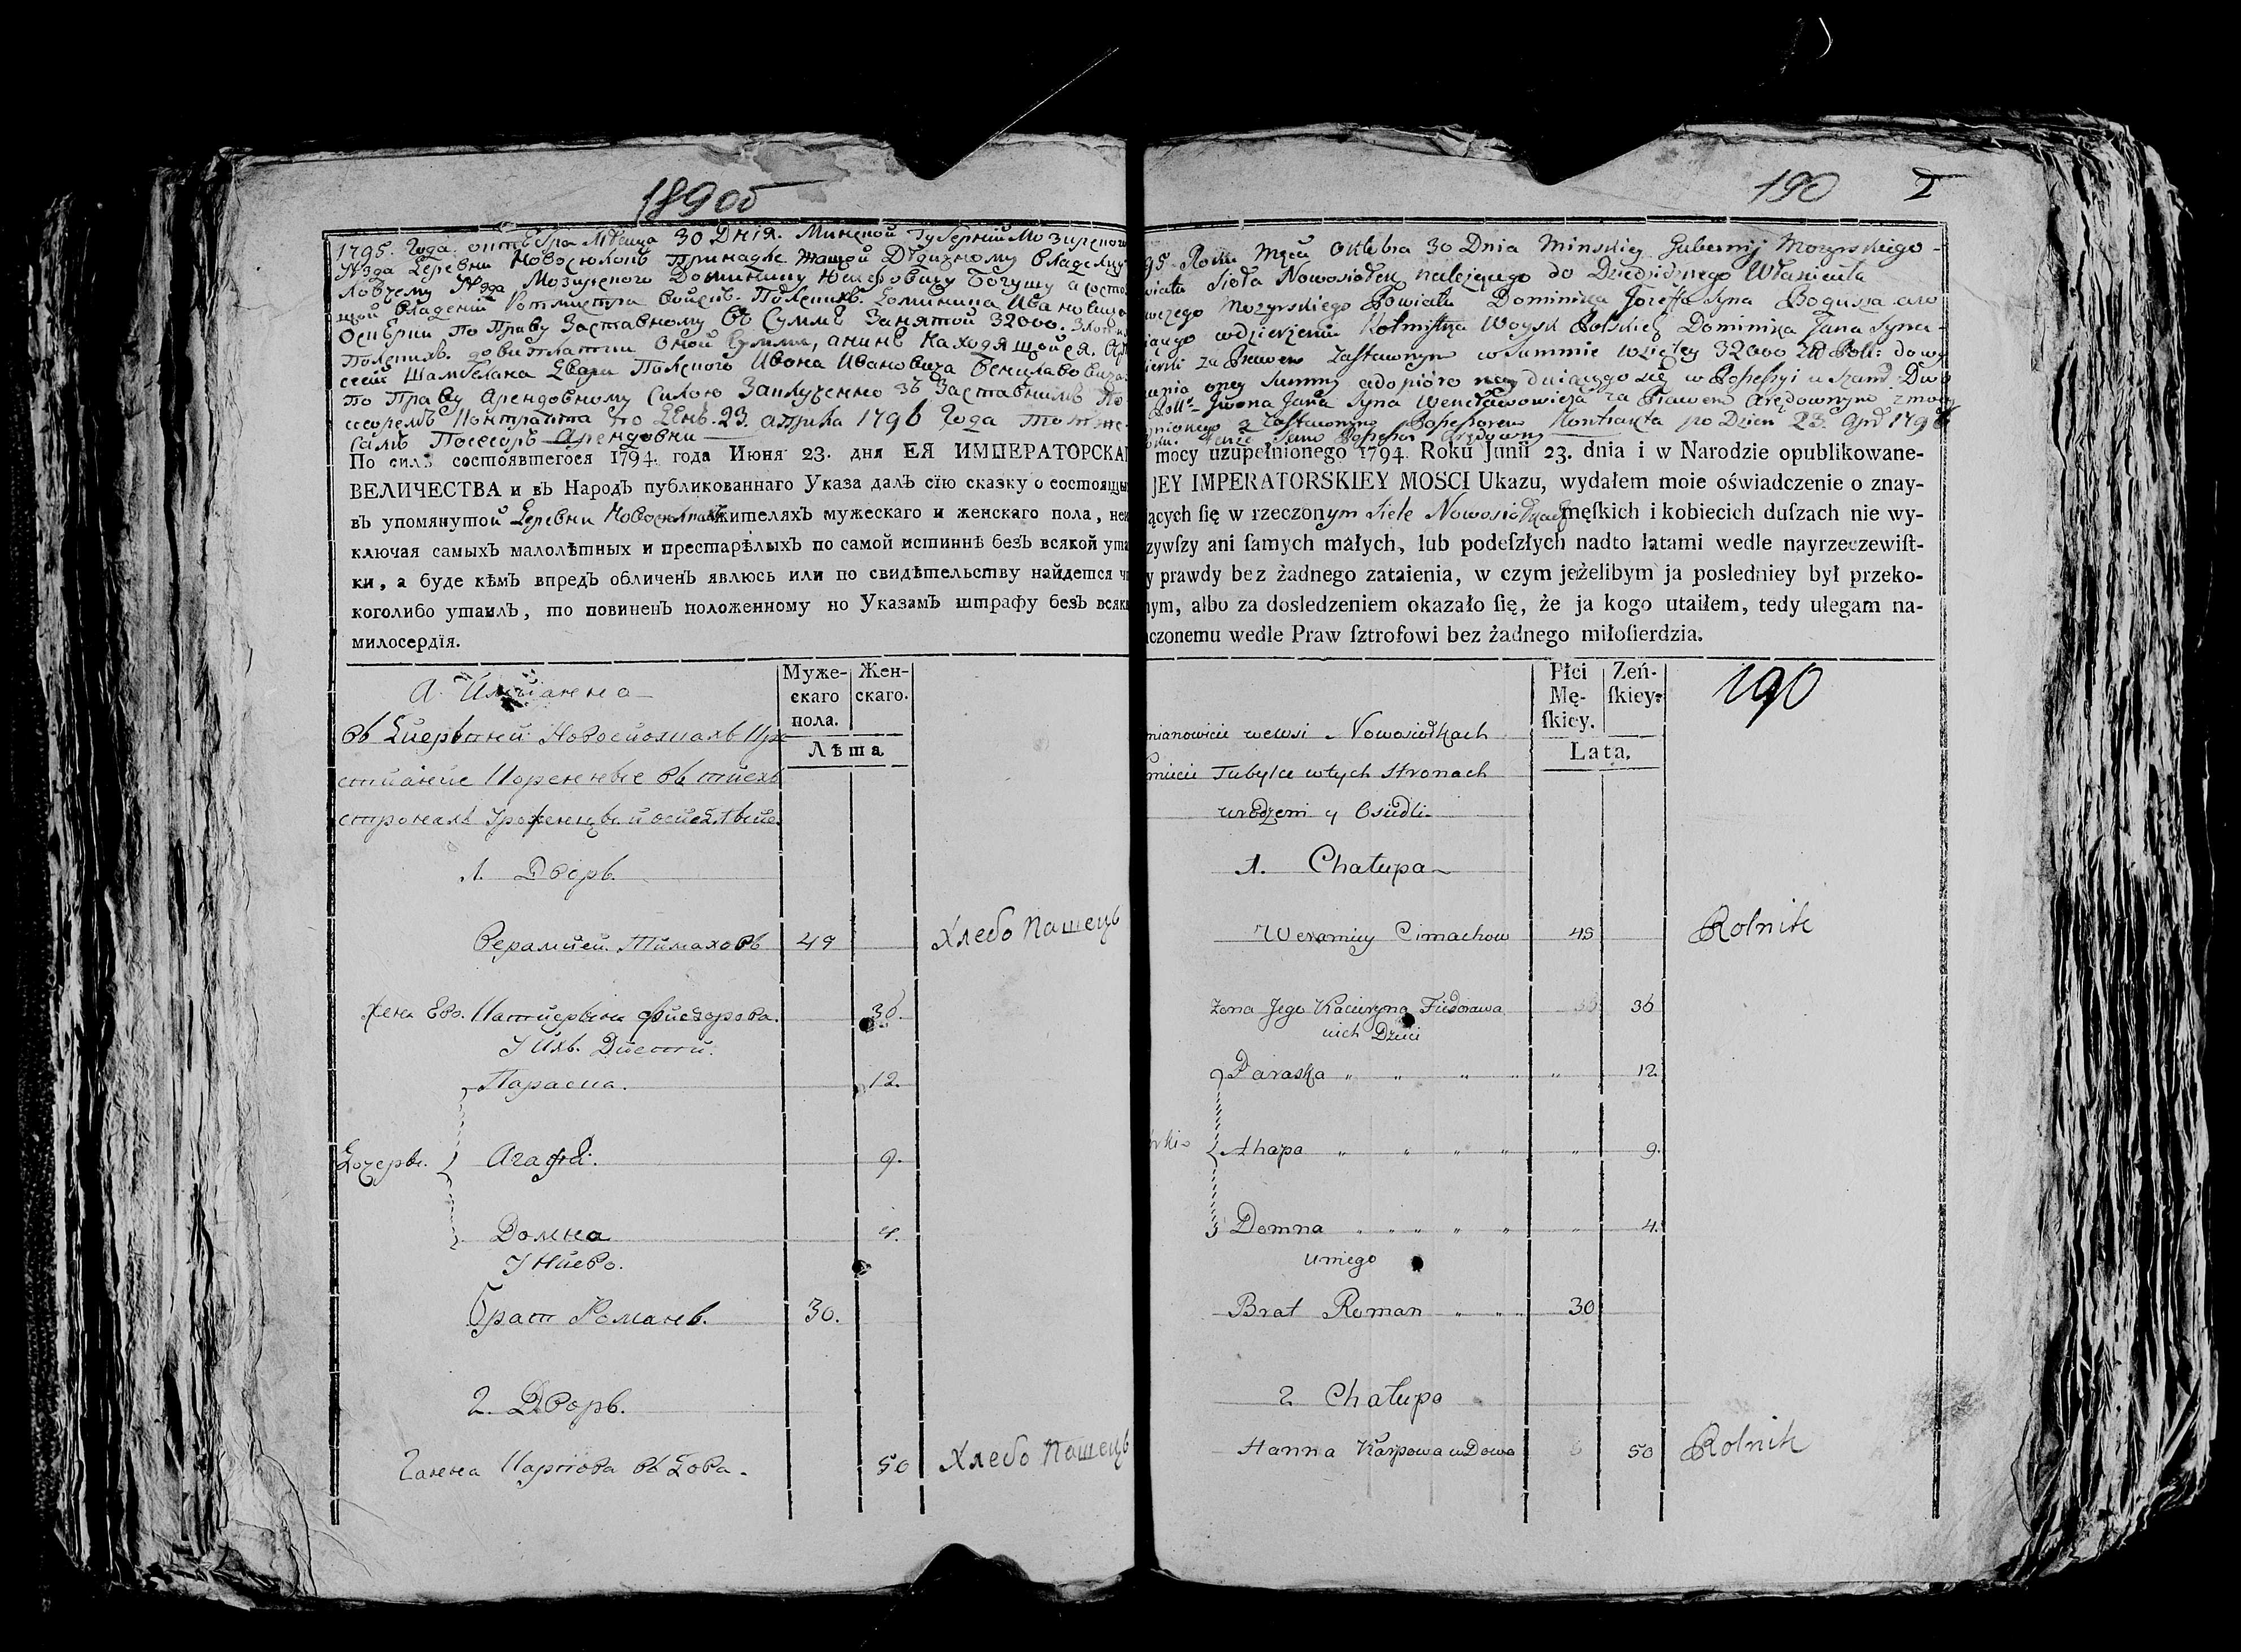 189об
1795. Года октебра Месеца 30 Днія. Минской Губерній Мозирского
Уѣзда Деревни Новосюлокъ Принадле жащой Дѣдизному Владелцу
Ловчему Уѣзда Мозирского Доминику Юзефовичу Богушу а состо
щой Владеніи Ротмистра Войскъ. Полскихъ. Доминика Ивановича
по Праву Заставному въ Суммѣ Занятой 32000. Злот
Полскихъ. до виплатки оной Суммы, анинѣ Находящойся.
Шамбелана Двора Полского Ивона Ивановича Бениславовича
По Праву Арендовному Силою Заключенно зъ Заставнымъ По
сесоремъ Контракта по День. 23. априля 1796 Года тотже
Самъ Посесоръ Арендовни
По силѣ состоявшегося 1794. года Июня 23. дня ЕЯ ИМПЕРАТОРСКА
ВЕЛИЧЕСТВА и въ Народъ публикованнаго Указа далъ сїю сказку о состоящы
въ упомянутой Деревни Новосюлкахъ жителяхъ мужескаго и женскаго пола, неи
ключая самыхъ малолѣтныхъ и престарѣлыхъ по самой истиннѣ безъ всякой ута
ки, а буде кѣмъ впредъ обличенъ явлюсь или по свидѣтельству найдется ч
коголибо утаилъ, то повиненъ положенному по Указамъ штрафу безъ всяк
милосердїя.
Муже-
скаго
пола.
Жен-
скаго.
Лѣта
А. Имѣанно
въ Дйеревний Новосйолкахъ Кре
стианйе Коренные въ тйехъ
сторонахъ Урожен и осйедлые
1. Дворъ.
Верамией Тимаховъ 49 Хлебо Пашецъ
Жена Его. Катйерына Фйедорова. 36.
У Ихъ. Дйетти.
Параска. 12.
Дочеры. Агафа. 9.
Домна 4.
У Нйево.
Брат Романъ. 30.
2. Дворъ.
Ганна Карпова въдова. 50 Хлебо Пашецъ
190 2
95. Roku Mięca Oktobra 30 Dnia Minskiey Gubernij Mozyrskiego
wiatu Sioła Nowosiołek należącego do Dziedzicznego Własciciela
wczego Mozyrskiego Powiatu Dominika Jozeffa Syna Bogusza
iącego wdzierżeniu Rotmistrza Woysk Polskich Dominika Jana Syna
za Prawem Zastawnym w Summie wziętey 32000 Zł Poll: do wy
oney Summy adopióro nay duiącego się w Possessyi u Szamb: Dwo
Poll: Iwona Jana Syna Wencławowicza za Prawem Arędownym z mocy
z Zastawnym Possessorem Kontrakta po Dzien 23. Apr 1796
Tenze Sam Possessor Arędowny
mocy uzupełnionego 1794. Roku Junii 23. dnia i w Narodzie opublikowane-
JEY IMPERATORSKIEY MOSCI Ukazu, wydałem moie oświadczenie o znay-
iących ſię w rzeczonym Siele Nowosiołkach męſkich i kobiecich duſzach nie wy-
zywſzy ani ſamych małych, lub podeſzłych nadto latami wedle nayrzeczewiſt-
y prawdy bez żadnego zataienia, w czym jeżelibym ja posledniey był przeko-
nym, albo za dosledzeniem okazało ſię, że ja kogo utaiłem, tedy ulegam na-
czonemu wedle Praw ſztrofowi bez żadnego miłoſierdzia.
Płci
Mę-
ſkiey.
Zeń-
ſkiey.
Lata.
190
mianowicie wewsi Nowosiołkach
Tubylce wtych Stronach
urodzeni y Osiedli
1. Chałupa
Weramiey Cimachow 49 Rolnik
Zona Jego Kacieryna Fiedorawa 36
uich Dzieci
Paraska " " " " " 12
rki Ahapa " " " " " 9.
Domna " " " " " " 4.
uniego
Brat Roman " " 30
2 Chałupa
Hanna Karpowa wDowa 50 Rolnik